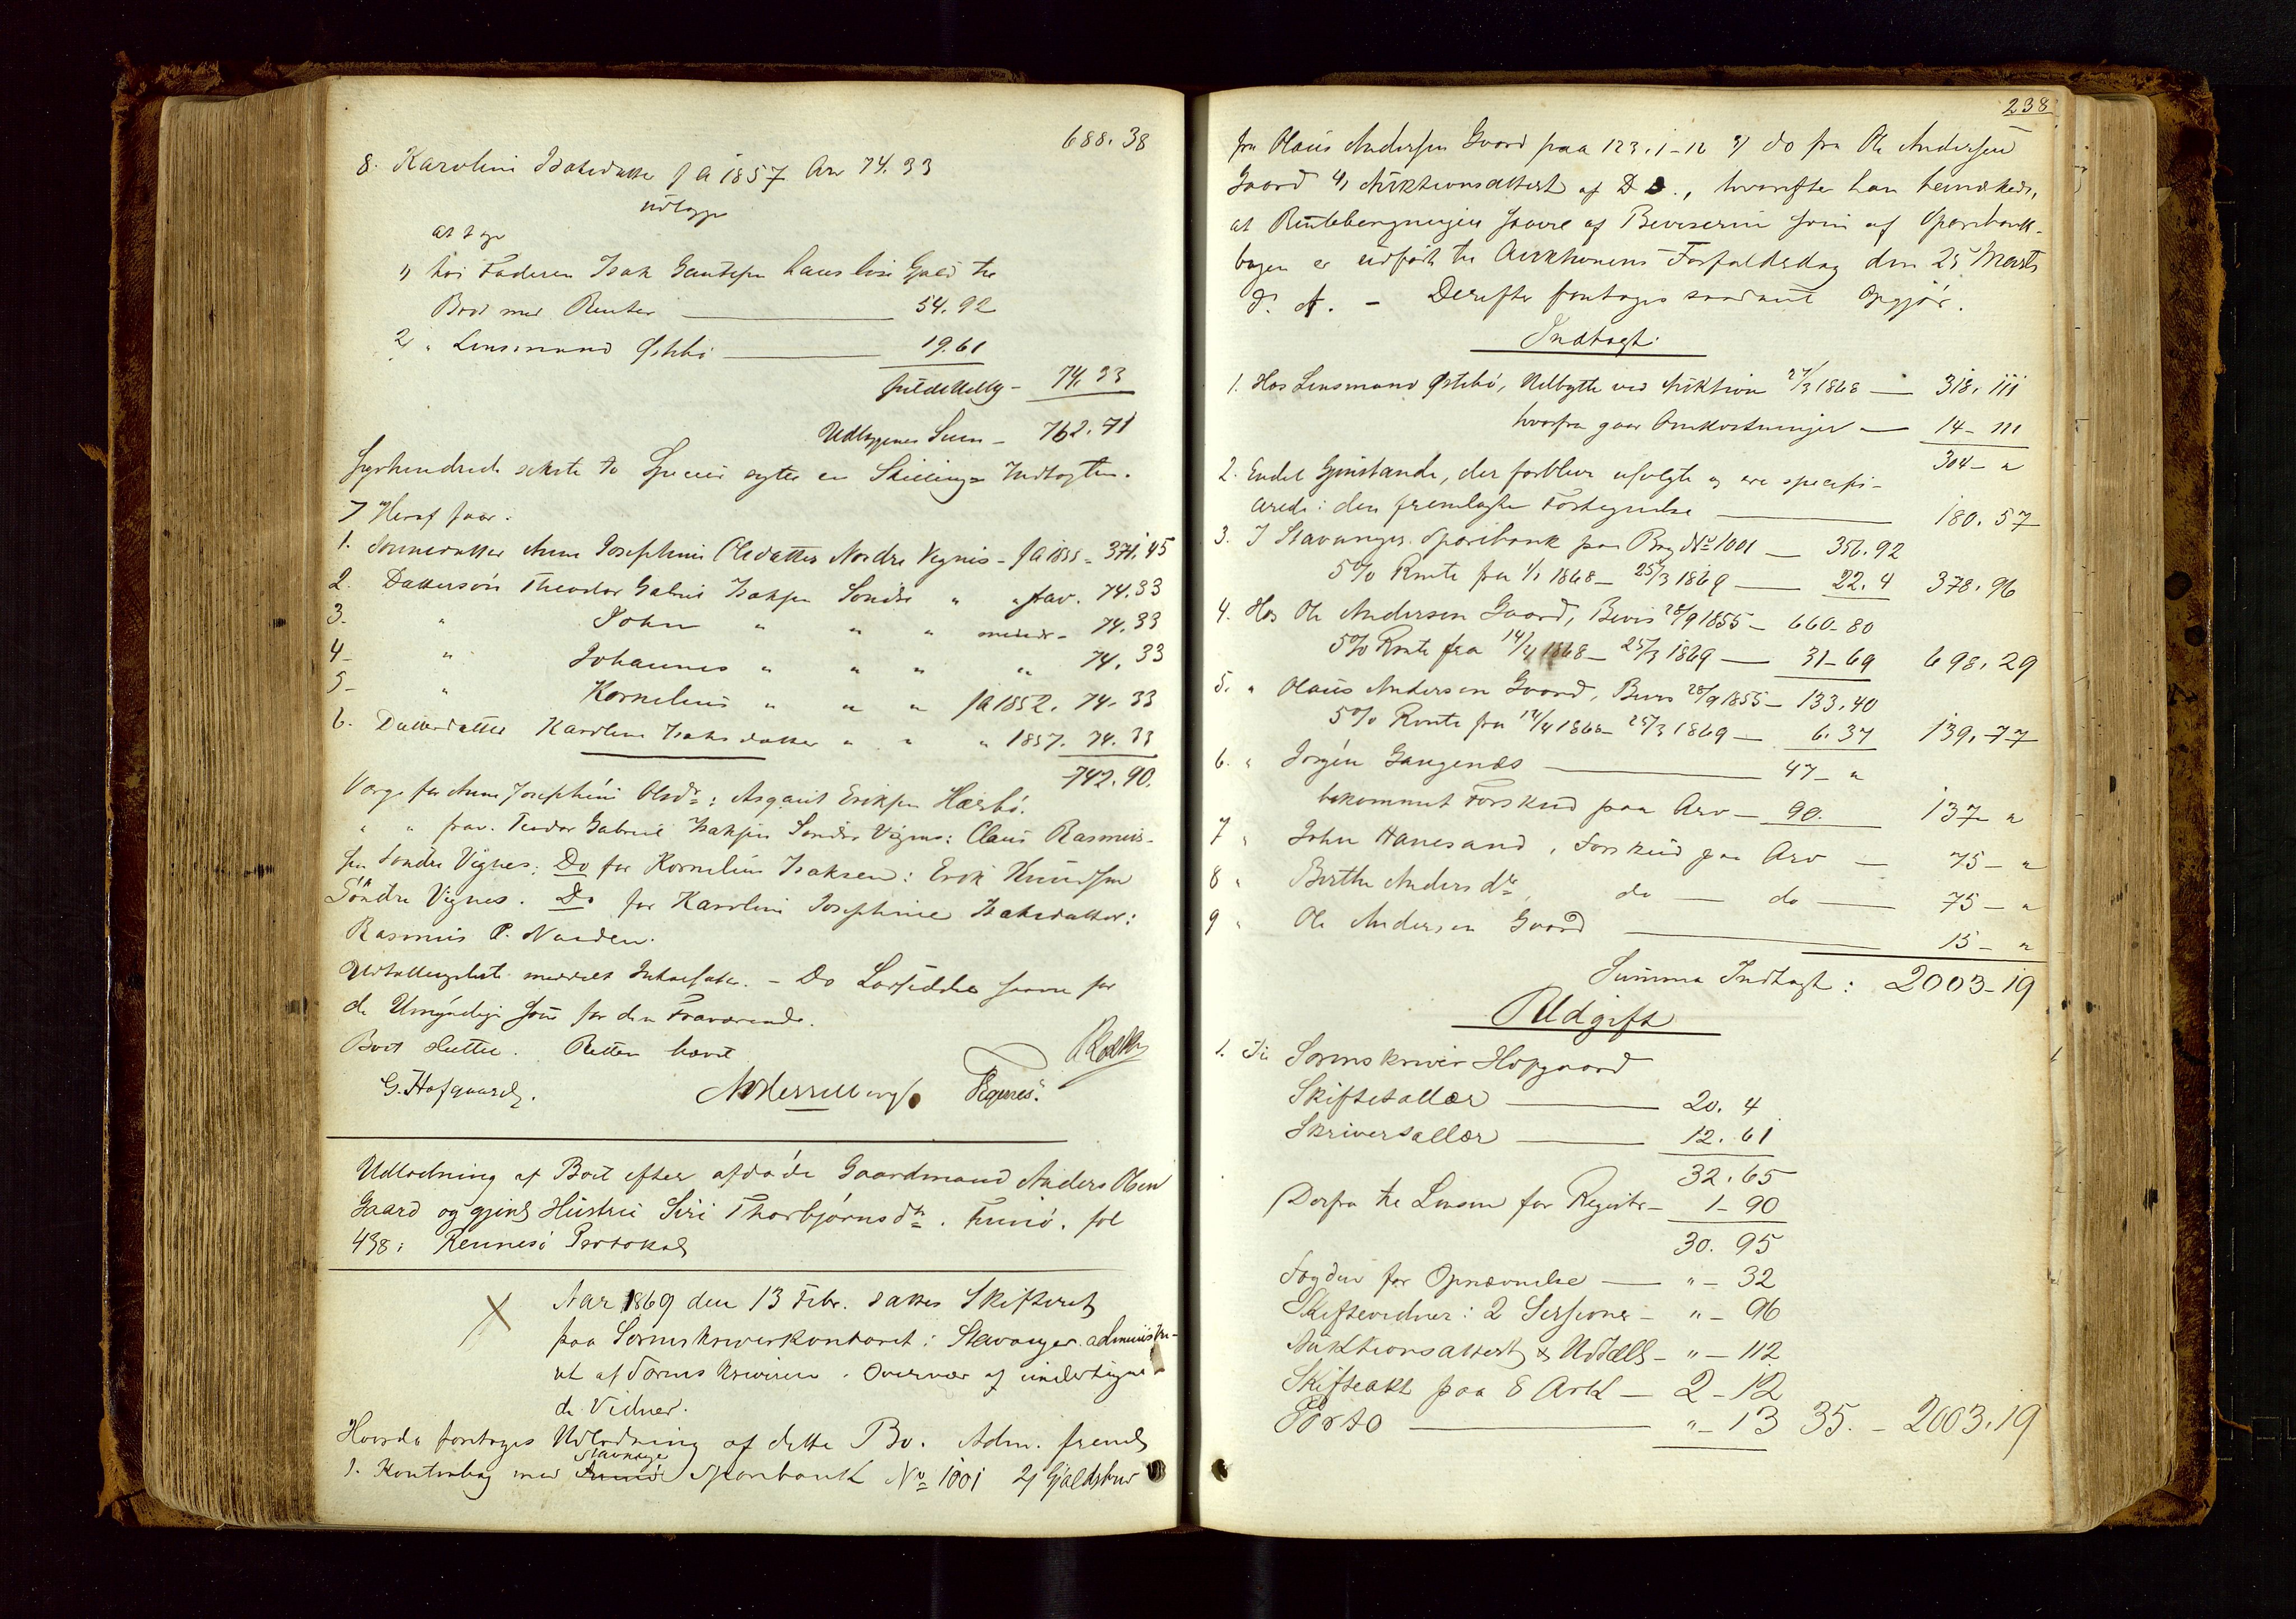 688. 38
8. Karolini Isaksdatter f A 1857 Arv 74. 33
udlagges
at tage
1) hos Faderen Isak Gautesen hans lose Gjeld til
Boet med Renter — 54. 92
2) " Lensmand Østebø — 19. 61
fuldstændig — 74. 33
Udlæggenes Sum — 762. 71
Syvhundrede sexti to Species sytti en Skilling = Indtægten.
7 Heraf faar.
1. Sønnedatter Anne Josephine Olsdatter Nordre Vignes - f A 1855 - 371. 45
2. Dattersøn Theodor Gabriel Isaksen Søndre " " frav. 74. 33
3. " John " " " 74. 33
4 - " Johannes " " " " 74. 33
5 - " Kornelius " " " f A 1852. 74. 33
6. Datterdatter Karoline Isaksdatter " " " 1857. 74. 33
742. 90.
Værge for Anne Josephine Olsdr: Asgaut Eriksen Hærbø.
" " frav. Teodor Gabriel Isaksen Søndre Vignes: Claus Rasmus-
sen Søndre Vignes; Do for Kornelius Isaksen: Erik Knudsen
Søndre Vignes. Do for Karolini Josephine Isaksdatter:
Rasmus P. Norden.
Udtællingsliste meddelt Inkassator. - Do Lovsiddes saavel for
de Umyndige som for den Fraværende.
Boet sluttet. Retten hævet
G. Hofgaard. Vignes.
Udlodning af Boet efter afdøde Gaardmand Anders Olsen
Gaard og gjenl Hustru Siri Thorbjørnsdr. Finnø. fol
438 i Rennesø Protokol
Aar 1869 den 13 Febr. sattes Skifteret
paa Sorenskriverkontoret i Stavanger administre-
ret af Sorenskriveren i Overvær af undertegne-
de Vidner.
Hvorda foretoges Udlodning af dette Bo. Adm. freml
1. Kontrabog med Stavanger Sparebank No 1001 2) Gjeldsbrev
238
fra Olaus Andersen Gaard paa 123. 1 - 12 3) do fra Ole Andersen
Gaard 4) Auktionsattest af D. D., hvorefter han bemærkede,
at Renteberegningen saavel af Beviserne som af Sparebank-
bogen er udført til Auktionens Forfaldsdag den 25 Marts
d. A. - Derefter foretoges saadant Opgjør.
Indtægt:
1. Hos Lensmand Østebø, Udbytte ved Auktion 27/3 1868 — 318. 111
hvorfra gaar Omkostninger — 14 - 111
304 - "
2. Endel Gjenstande, der forblev usolgte og ere specifi-
cerede i den fremlagte Fortegnelse — 180. 57
3. I Stavanger Sparebank paa Bog No 1001 — 356. 92
5% Rente fra 1/1 1868 - 25/3 1869 — 22. 4 378. 96
4. Hos Ole Andersen Gaard, Bevis 28/9 1855 - 660 - 80
5% Rente fra 14/4 1868 - 25/3 1869 — 31 - 69 698. 29
5. " Olaus Andersen Gaard, Bevis 28/9 1855 - 133. 40
5% Rente fra 14/4 1868 - 25/3 1869 — 6. 37 139. 77
6. " Jørgen Gangenæs — 47 - "
bekommet Forskud paa Arv - 90. 137 - "
7 " John Hanesand, Forskud paa Arv — 75 - "
8 " Berthe Andersdr, do — do — 75 - "
9 " Ole Andersen Gaard — 15 - "
Summa Indtægt: 2003 - 19
Udgift
1. Til Sorenskriver Hofgaard
Skiftesallær — 20. 4
Skriversallær — 12. 61
32. 65
Derfra til Lensm for Registr - 1 - 90
30. 95
Fogden for Opnævnelse — " - 32
Skiftevidner: 2 Sessioner - " - 96
Auktionsattest & Udtælls - " - 112
Skifteakt paa 8 Ark — 2 - 12
Porto — " - 13 35. - 2003. 19